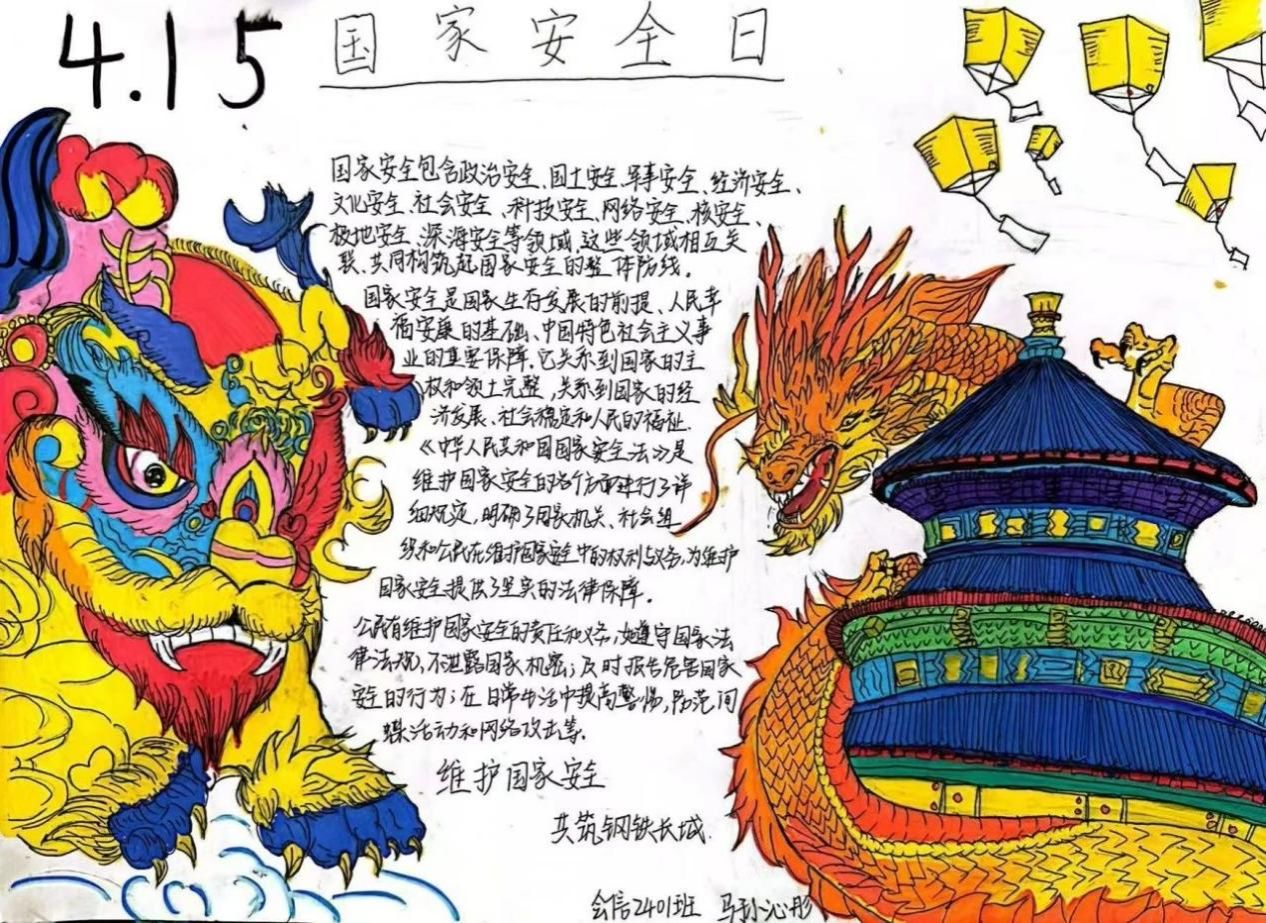 4.15 国家安全日
国家安全包含政治安全、国土安全、军事安全、经济安全、
文化安全、社会安全、科技安全、网络安全、核安全、
极地安全、深海安全等领域,这些领域相互关
联、共同构筑起国家安全的整体防线。
国家安全是国家生存发展的前提、人民幸
福安康的基础、中国特色社会主义事
业的重要保障。它关系到国家的主
权和领土完整,关系到国家的经
济发展、社会稳定和人民的福祉。
《中华人民共和国国家安全法》是
维护国家安全的各个方面进行了详
细规定,明确了国家机关、社会组
织和公民在维护国家安全中的权利与义务,为维护
国家安全提供了坚实的法律保障。
公民有维护国家安全的责任和义务,如遵守国家法
律法规,不泄露国家机密;及时报告危害国家
安全的行为;在日常生活中提高警惕,防范间
谍活动和网络攻击等。
维护国家安全
共筑钢铁长城.
会信2401班 马孙沁彤